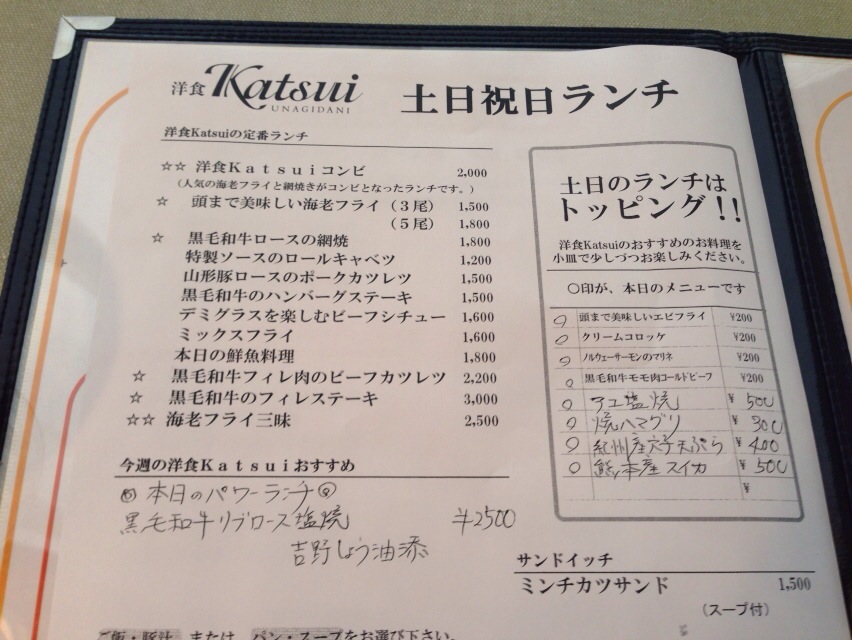 洋食 Katsui
UNAGIDANI
土日祝日ランチ
洋食Katsuiの定番ランチ
☆☆ 洋食Ｋａｔｓｕｉコンビ 2,000
（人気の海老フライと網焼きがコンビとなったランチです。）
☆ 頭まで美味しい海老フライ（３尾） 1,500
（５尾） 1,800
☆ 黒毛和牛ロースの網焼 1,800
特製ソースのロールキャベツ 1,200
山形豚ロースのポークカツレツ 1,500
黒毛和牛のハンバーグステーキ 1,500
デミグラスを楽しむビーフシチュー 1,600
ミックスフライ 1,600
本日の鮮魚料理 1,800
☆ 黒毛和牛フィレ肉のビーフカツレツ 2,200
☆ 黒毛和牛のフィレステーキ 3,000
☆☆ 海老フライ三昧 2,500
今週の洋食Ｋａｔｓｕｉおすすめ
◎ 本日のパワーランチ ◎
黒毛和牛リブロース塩焼 ¥2500
吉野しょう油添
ご飯・豚汁 または パン・スープをお選び下さい。
土日のランチは
トッピング！！
洋食Katsuiのおすすめのお料理を
小皿で少しづつお楽しみください。
○印が、本日のメニューです
○ 頭まで美味しいエビフライ ¥200
○ クリームコロッケ ¥200
○ ノルウェーサーモンのマリネ ¥200
○ 黒毛和牛モモ肉コールドビーフ ¥200
○ アユ塩焼 ¥ 500
○ 焼ハマグリ ¥ 300
○ 紀州産穴子天ぷら ¥ 400
○ 熊本産スイカ ¥ 500
¥
サンドイッチ
ミンチカツサンド 1,500
（スープ付）